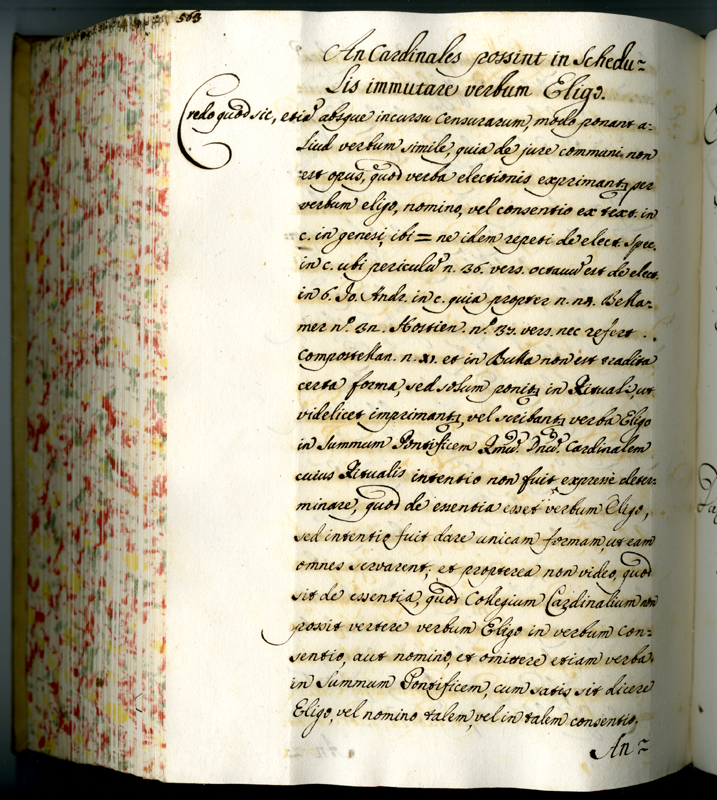 563
An Cardinales possint in Schedu=
lis immutare verbum Eligo.
Credo quod sic, etiã absque incursu Censurarum, modo ponant a=
liud verbum simile, quia de jure communi non
est opus, quod verba electionis exprimantr per
verbum eligo, nomino, vel consentio ex text. in
c. in genesi, ibi = ne idem repeti de elect. Spec.
in c. ubi periculũ n. 36. vers. octauũ est de elect.
in 6. Jo. Andr. in c. quia propter n. 14. Bella=
mer nº. 3n. Hostien. nº. 37. vers. nec refert
Compostellan. n. XI. et in Bulla non est tradita
certa forma, sed solum ponitr in Rituali, ut
videlicet imprimantr, vel scribantr verba Eligo
in Summum Pontificem Rmũ. Dnũ. Cardinalem
cuius Ritualis intentio non fuit expresse deter=
minare, quod de essentia esset verbum Eligo,
sed intentio fuit dare unicam formam, ut eam
omnes servarent; et propterea non video, quod
sit de essentia, quod Collegium Cardinalium non
possit vertere verbum Eligo in verbum Con=
sentio, aut nomino, et omittere etiam verba
in Summum Pontificem, cum satis sit dicere
Eligo, vel nomino talem, vel in talem consentio.
An=